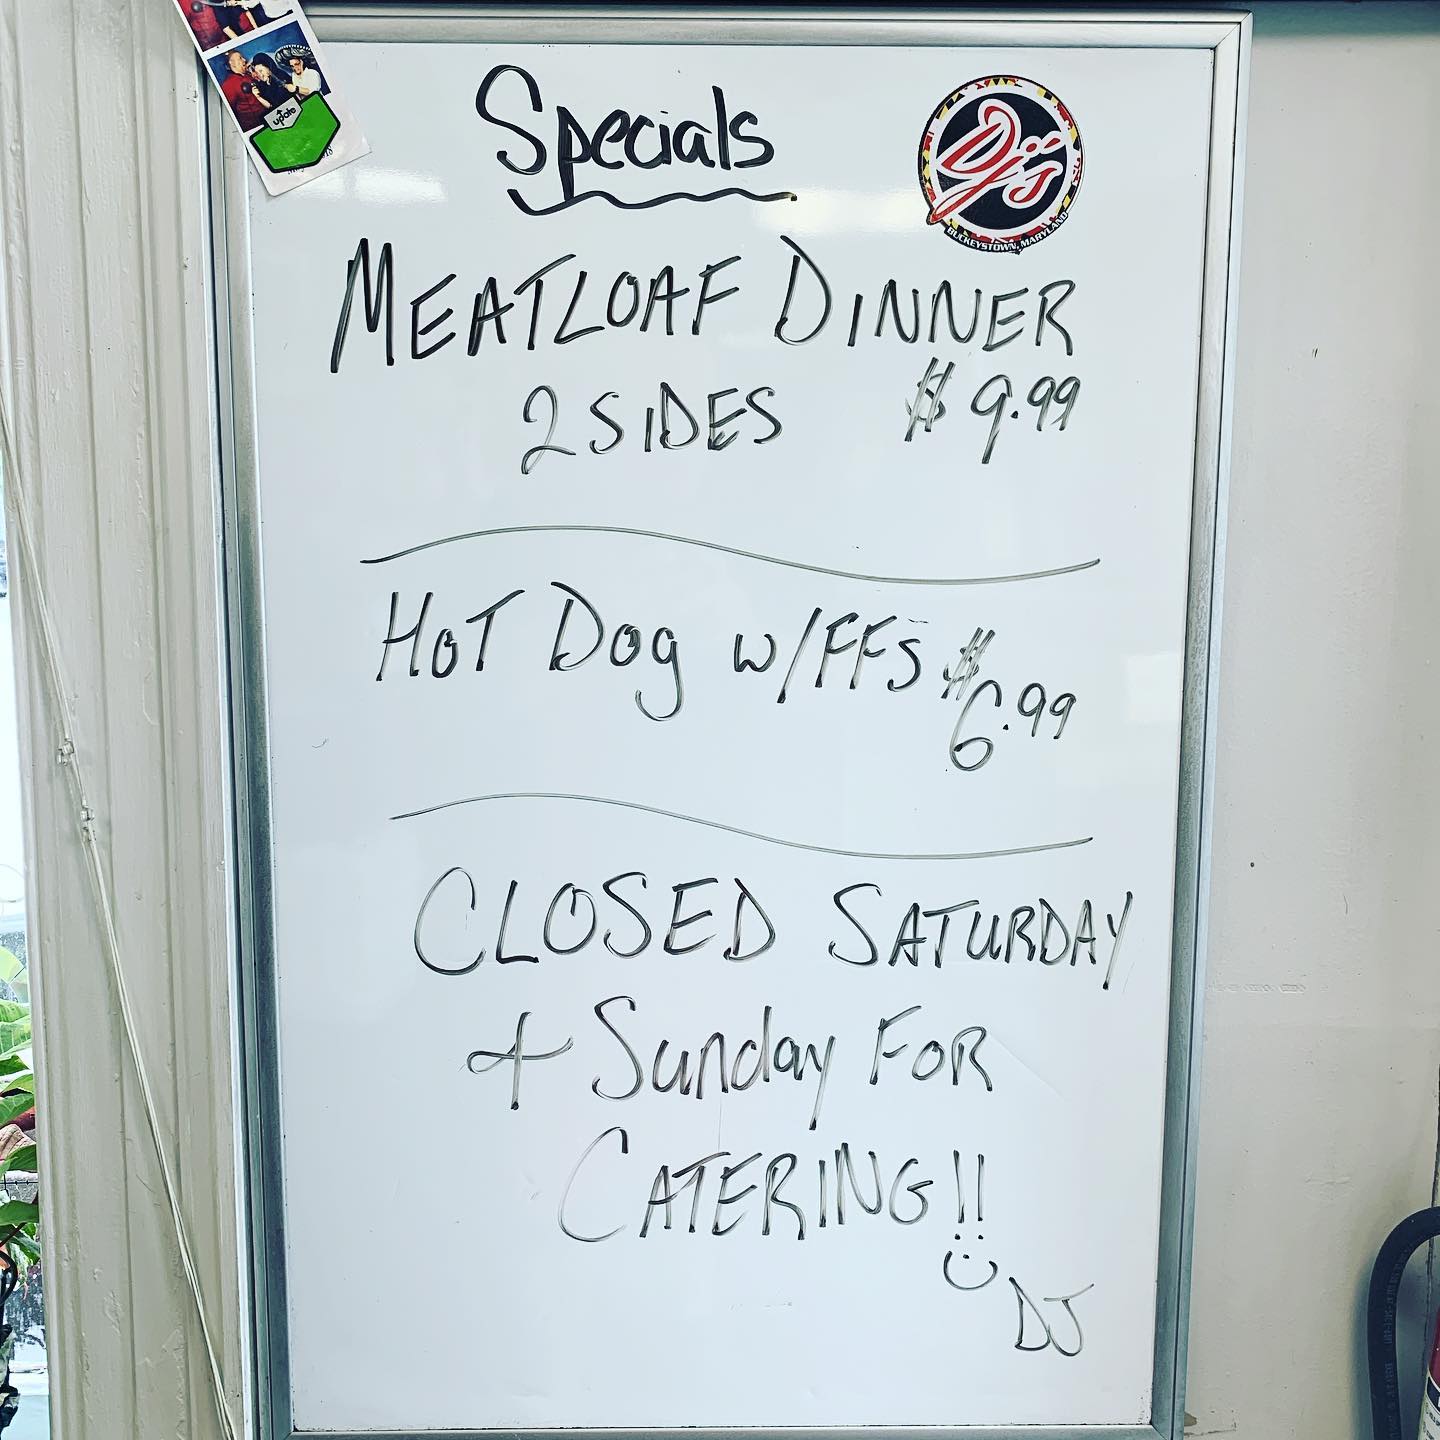 update
Specials
Dj's
BUCKEYSTOWN, MARYLAND
MEATLOAF DINNER
2 SIDES $9.99
HOT DOG w/FFS $6.99
CLOSED SATURDAY
+ Sunday FOR
CATERING!!
DJ